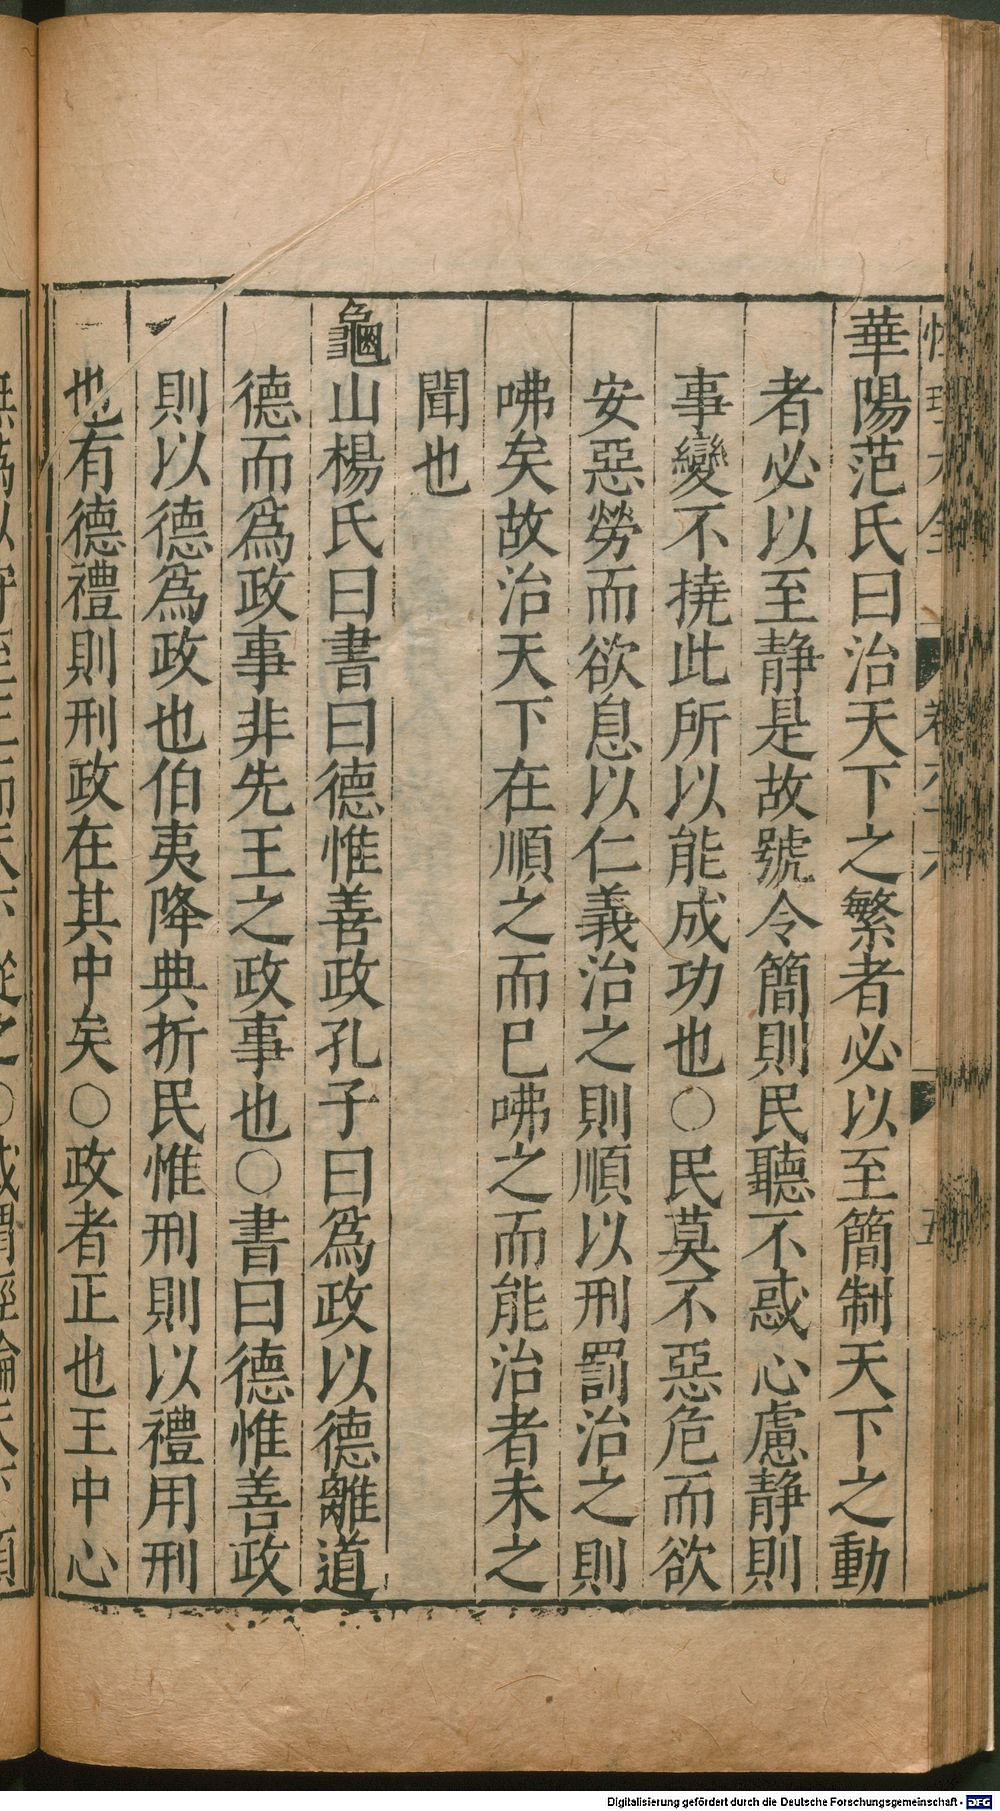 華陽范氏曰治天下之繁者必以至簡制天下之動
者必以至静是故號令簡則民聽不惑心慮静則
事變不撓此所以能成功也○民莫不惡危而欲
安惡勞而欲息以仁義治之則順以刑罰治之則
咈矣故治天下在順之而已咈之而能治者未之
聞也
龜山楊氏曰書曰德惟善政孔子曰爲政以德離道
德而爲政事非先王之政事也○書曰德惟善政
則以德爲政也伯夷降典折民惟刑則以禮用刑
也有德禮則刑政在其中矣○政者正也王中心
Digitalisierung gefördert durch die Deutsche Forschungsgemeinschaft - DFG